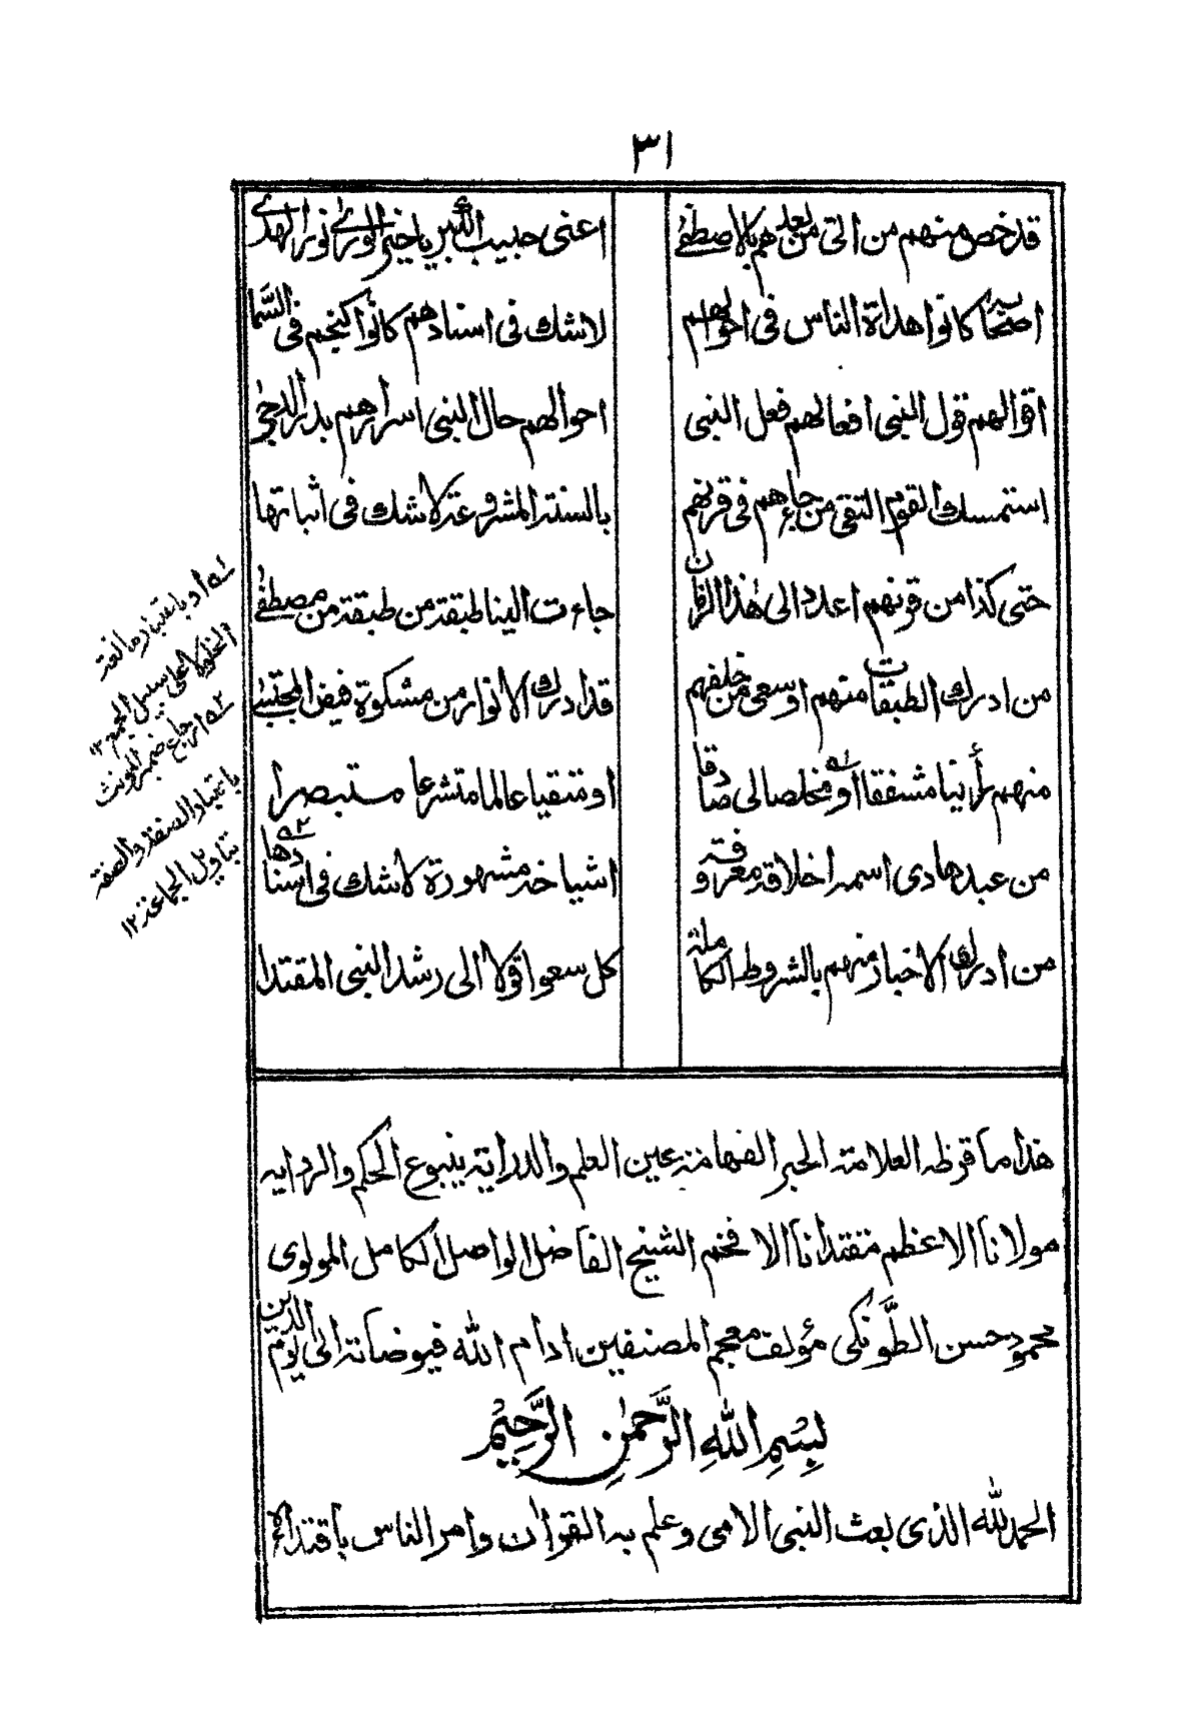 ٣١
قد خص منهم من اتى من بعدهم بالاصطفٰى
اعنى حبيب الله يا خير الورٰى نور الهدٰى
اصحابه كانوا هداة الناس فى احوالهم
لا شك فى اسنادهم كانوا كنجم فى السَّما
اقوالهم قول النبى افعالهم فعل النبى
احوالهم حال النبى اسرارهم بدر الدجٰى
استمسك القوم التقى من جاءهم فى قرنهم
بالسنة المشروعة لا شك فى اثباتها
حتى كذا من قرنهم اعدد الى هٰذا الزمان
جاءت الينا طبقة من طبقة من مصطفٰى
من ادرك الطبقات منهم او سعى من خلفهم
قد ادرك الانوار من مشكوة فيض المجتبٰى
منهم رأينا مشفقا او مخلصا لى صادقا
او متقيا عالما متشرعا مستبصرا
من عبد هادى اسمه اخلاقه معروفة
اشياخه مشهورة لا شك فى اسنادها
من ادرك الاخبار منهم بالشروط الكاملة
كل سعوا قولا الى رشد النبى المقتدا
٥١ او باعتبار
الخلو لا على سبيل الجمع ١٢
٥٢ ارجاع ضمير المونث
باعتبار الصفة والصفة
بتاويل الجماعة ١٢
هذا ما قرظه العلامة الحبر الفهامة عين العلم والدراية ينبوع الحكم والرواية
مولانا الاعظم مقتدانا الافخم الشيخ الفاضل الواصل الكامل المولوى
محمود حسن الطَّونكى مؤلف معجم المصنفين ادام الله فيوضاته الى يوم الدين
بِسْمِ اللهِ الرَّحمٰنِ الرَّحِيْمِ
الحمد لله الذى بعث النبى الامى وعلم به القراٰن وامر الناس باقتداءه